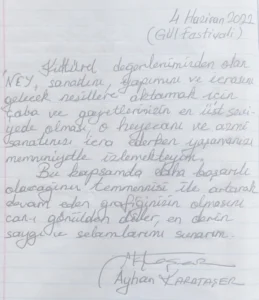 4 Haziran 2022
(GÜL Festivali)
Kültürel değerlerimizden olan
'NEY, sanatını yapımını ve icrasını
gelecek nesillere aktarmak için
çaba ve gayretlerinizin en üst sevi-
yede olması, o heyecanı ve azmi
sanatınızı icra ederken yaşamanızı
memnuniyetle izlemekteyim.
Bu kapsamda daha başarılı
olacağının temennisi ile artarak
devam eden grafiğinizin olmasını
can-ı gönülden diler, en derin
saygı ve selamlarımı sunarım.
Ayhan KARATAŞER